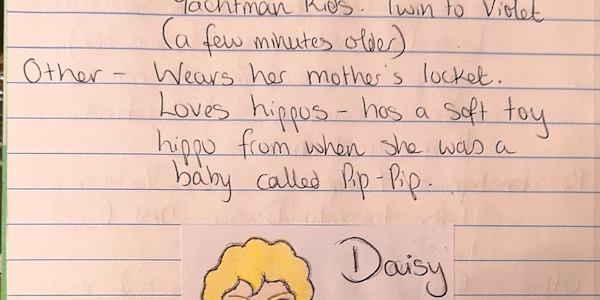 Yachtman Kids. Twin to Violet
(a few minutes older)
Other - Wears her mother's locket.
Loves hippos - has a soft toy
hippo from when she was a
baby called Pip-Pip.
Daisy